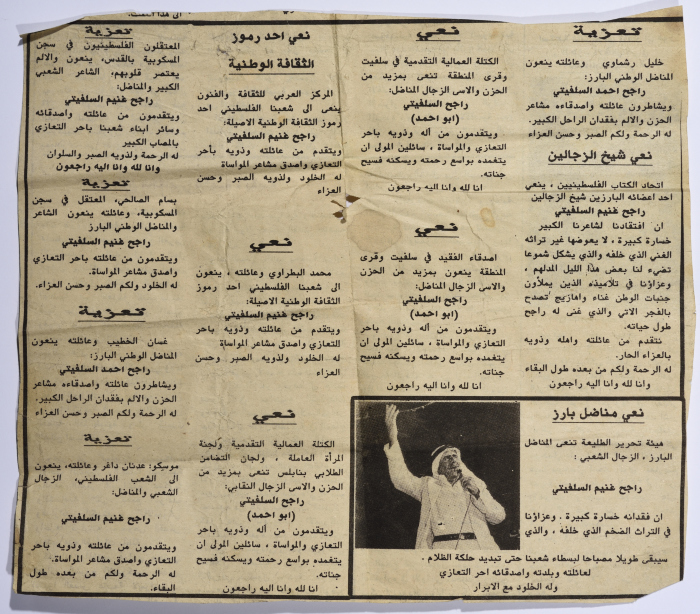 تعزية
خليل رشماوي وعائلته ينعون
المناضل الوطني البارز:
راجح احمد السلفيتي
ويشاطرون عائلته واصدقاءه مشاعر
الحزن والالم بفقدان الراحل الكبير.
له الرحمة ولكم الصبر وحسن العزاء
نعي شيخ الزجالين
اتحاد الكتاب الفلسطينيين ، ينعي
احد اعضائه البارزين شيخ الزجالين
راجح غنيم السلفيتي
ان افتقادنا لشاعرنا الكبير
خسارة كبيرة ، لا يعوضها غير تراثه
الغني الذي خلفه والذي يشكل شموعا
تضيء لنا بعض هذا الليل المدلهم ،
وعزاؤنا في تلاميذه الذين يملأون
جنبات الوطن غناء واهازيج تصدح
بالفجر الاتي والذي غنى له راجح
طول حياته.
نتقدم من عائلته واهله وذويه
بالعزاء الحار.
له الرحمة ولكم من بعده طول البقاء
وانا لله وانا اليه راجعون
نعي مناضل بارز
هيئة تحرير الطليعة تنعى المناضل
البارز ، الزجال الشعبي :
راجح غنيم السلفيتي
ان فقدانه خسارة كبيرة . وعزاؤنا
في التراث الضخم الذي خلفه ، والذي
سيبقى طويلا مصباحا لبسطاء شعبنا حتى تبديد حلكة الظلام .
لعائلته وبلدته واصدقائه احر التعازي
وله الخلود مع الابرار
نعي
الكتلة العمالية التقدمية في سلفيت
وقرى المنطقة تنعى بمزيد من
الحزن والاسى الزجال المناضل:
راجح غنيم السلفيتي
(ابو احمد)
ويتقدمون من آله وذويه باحر
التعازي والمواساة ، سائلين المولى ان
يتغمده بواسع رحمته ويسكنه فسيح
جناته.
انا لله وانا اليه راجعون
نعي
اصدقاء الفقيد في سلفيت وقرى
المنطقة ينعون بمزيد من الحزن
والاسى الزجال المناضل:
راجح غنيم السلفيتي
(ابو احمد)
ويتقدمون من آله وذويه باحر
التعازي والمواساة ، سائلين المولى ان
يتغمده بواسع رحمته ويسكنه فسيح
جناته.
انا لله وانا اليه راجعون
نعي احد رموز
الثقافة الوطنية
المركز العربي للثقافة والفنون
ينعى الى شعبنا الفلسطيني احد
رموز الثقافة الوطنية الاصيلة:
راجح غنيم السلفيتي
ويتقدم من عائلته وذويه بأحر
التعازي واصدق مشاعر المواساة
له الخلود ولذويه الصبر وحسن
العزاء
نعي
محمد البطراوي وعائلته ، ينعون
الى شعبنا الفلسطيني احد رموز
الثقافة الوطنية الاصيلة:
راجح غنيم السلفيتي
ويتقدم من عائلته وذويه بأحر
التعازي واصدق مشاعر المواساة
له الخلود ولذويه الصبر وحسن
العزاء
نعي
الكتلة العمالية التقدمية ولجنة
المرأة العاملة ، ولجان التضامن
الطلابي بنابلس تنعى بمزيد من
الحزن والاسى الزجال النقابي:
راجح السلفيتي
(ابو احمد)
ويتقدمون من آله وذويه باحر
التعازي والمواساة ، سائلين المولى ان
يتغمده بواسع رحمته ويسكنه فسيح
جناته.
انا لله وانا اليه راجعون
الى هذا
تعزية
المعتقلون الفلسطينيون في سجن
المسكوبية بالقدس، ينعون والالم
يعتصر قلوبهم، الشاعر الشعبي
الكبير والمناضل:
راجح غنيم السلفيتي
ويتقدمون من عائلته واصدقائه
وسائر ابناء شعبنا باحر التعازي
بالمصاب الكبير
له الرحمة ولذويه الصبر والسلوان
وانا لله وانا اليه راجعون
تعزية
بسام الصالحي، المعتقل في سجن
المسكوبية، وعائلته ينعون الشاعر
والمناضل الوطني البارز
راجح غنيم السلفيتي
ويتقدمون من عائلته باحر التعازي
واصدق مشاعر المواساة.
له الخلود ولكم الصبر وحسن العزاء.
تعزية
غسان الخطيب وعائلته ينعون
المناضل الوطني البارز:
راجح احمد السلفيتي
ويشاطرون عائلته واصدقاءه مشاعر
الحزن والالم بفقدان الراحل الكبير.
له الرحمة ولكم الصبر وحسن العزاء
تعزية
موسكو: عدنان داغر وعائلته، ينعون
الى الشعب الفلسطيني، الزجال
الشعبي والمناضل:
راجح غنيم السلفيتي
ويتقدمون من عائلته وذويه باحر
التعازي واصدق مشاعر المواساة.
له الرحمة ولكم من بعده طول
البقاء.